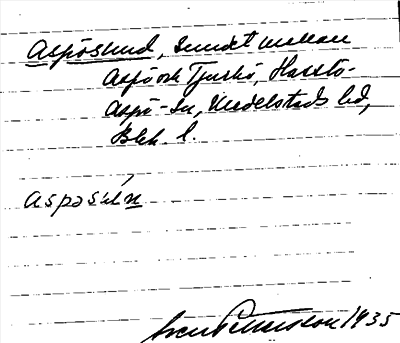 Aspösund, Sundet mellan
Aspö och Tjurkö, Hasslö-
Aspö-Sn, Medelstads hd,
Blek. l.
aspəsún
1935